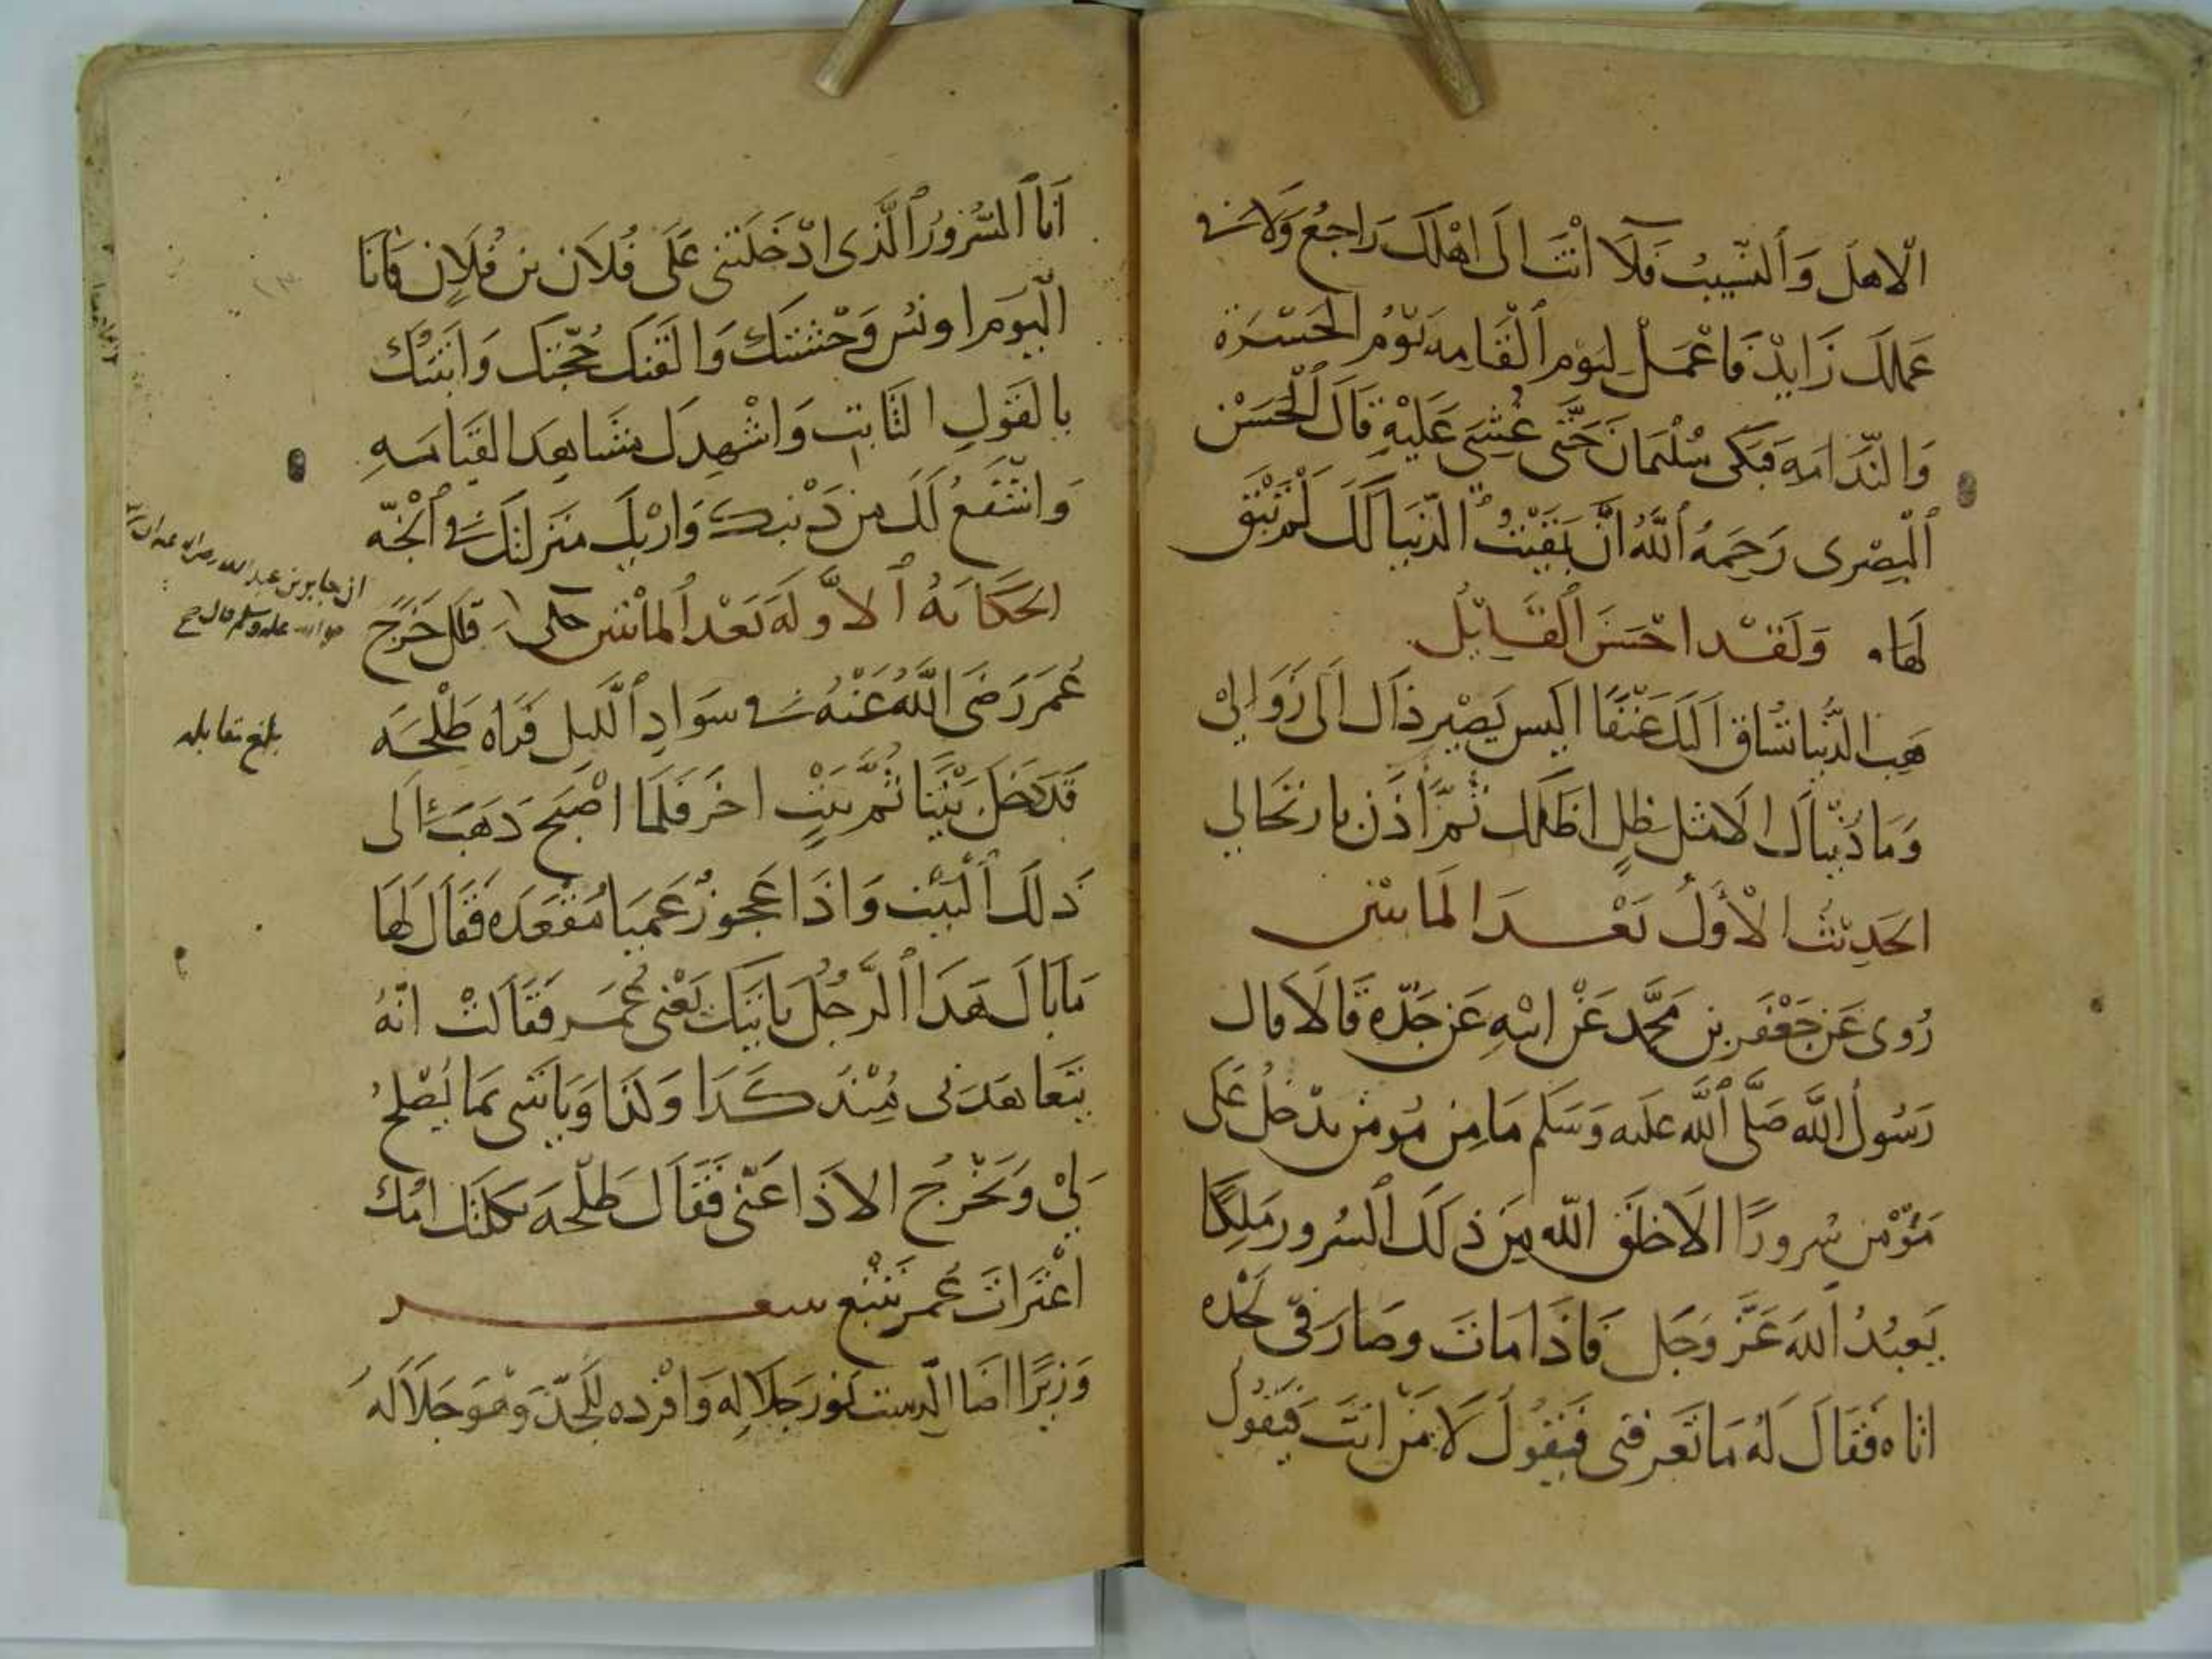 الاهل والنسيب فلا انت الى اهلك راجع ولا في
عملك زايد فاعمل ليوم القامه يوم الحسرة
والندامه فبكى سليمان حتى غشي عليه قال الحسن
البصرى رحمه الله ان بقيت الدنيا لك لم تبق
لها ولقد احسن القايل
هب الدنيا تساق اليك عفوا اليس يصير ذاك الى زوال
وما دنياك الا مثل ظل اظلك ثم اذن بارتحال
الحديث الاول بعد المايتين
روى عن جعفر بن محمد عن ابيه عن جده قالا قال
رسول الله صلى الله عليه وسلم ما من مومن يدخل على
مؤمن سرورا الا خلق الله من ذلك السرور ملكا
يعبد الله عز وجل فاذا مات وصار في لحده
اتاه فقال له ما تعرفني فيقول لا من انت فيقول
انا السرور الذى ادخلتني على فلان بن فلان فانا
اليوم اونس وحشتك والقنك حجتك واثبتك
بالقول الثابت واشهدك مشاهد القيامه
واشفع لك من ذنبك واريك منزلتك في الجنه
الحكايه الاوله بعد المائتين حكى قال خرج
عمر رضى الله عنه في سواد الليل فراه طلحه
قد دخل بيتا ثم بيت اخر فلما اصبح ذهب الى
ذلك البيت واذا عجوز عميا مقعده فقال لها
ما بال هذا الرجل ياتيك يعنى عمر فقالت انه
يتعاهدنى منذ كذا وكذا وياتى بما يصلح
لي ويخرج الاذا عنى فقال طلحه ثكلتك امك
اعثرات عمر تتبع شعر
وزيرا اضا الدست نور جلاله وافرده للجد وهو جلاله
ان جابر بن عبد الله رضي الله عنه
عليه وسلم قال
بلغ مقابله